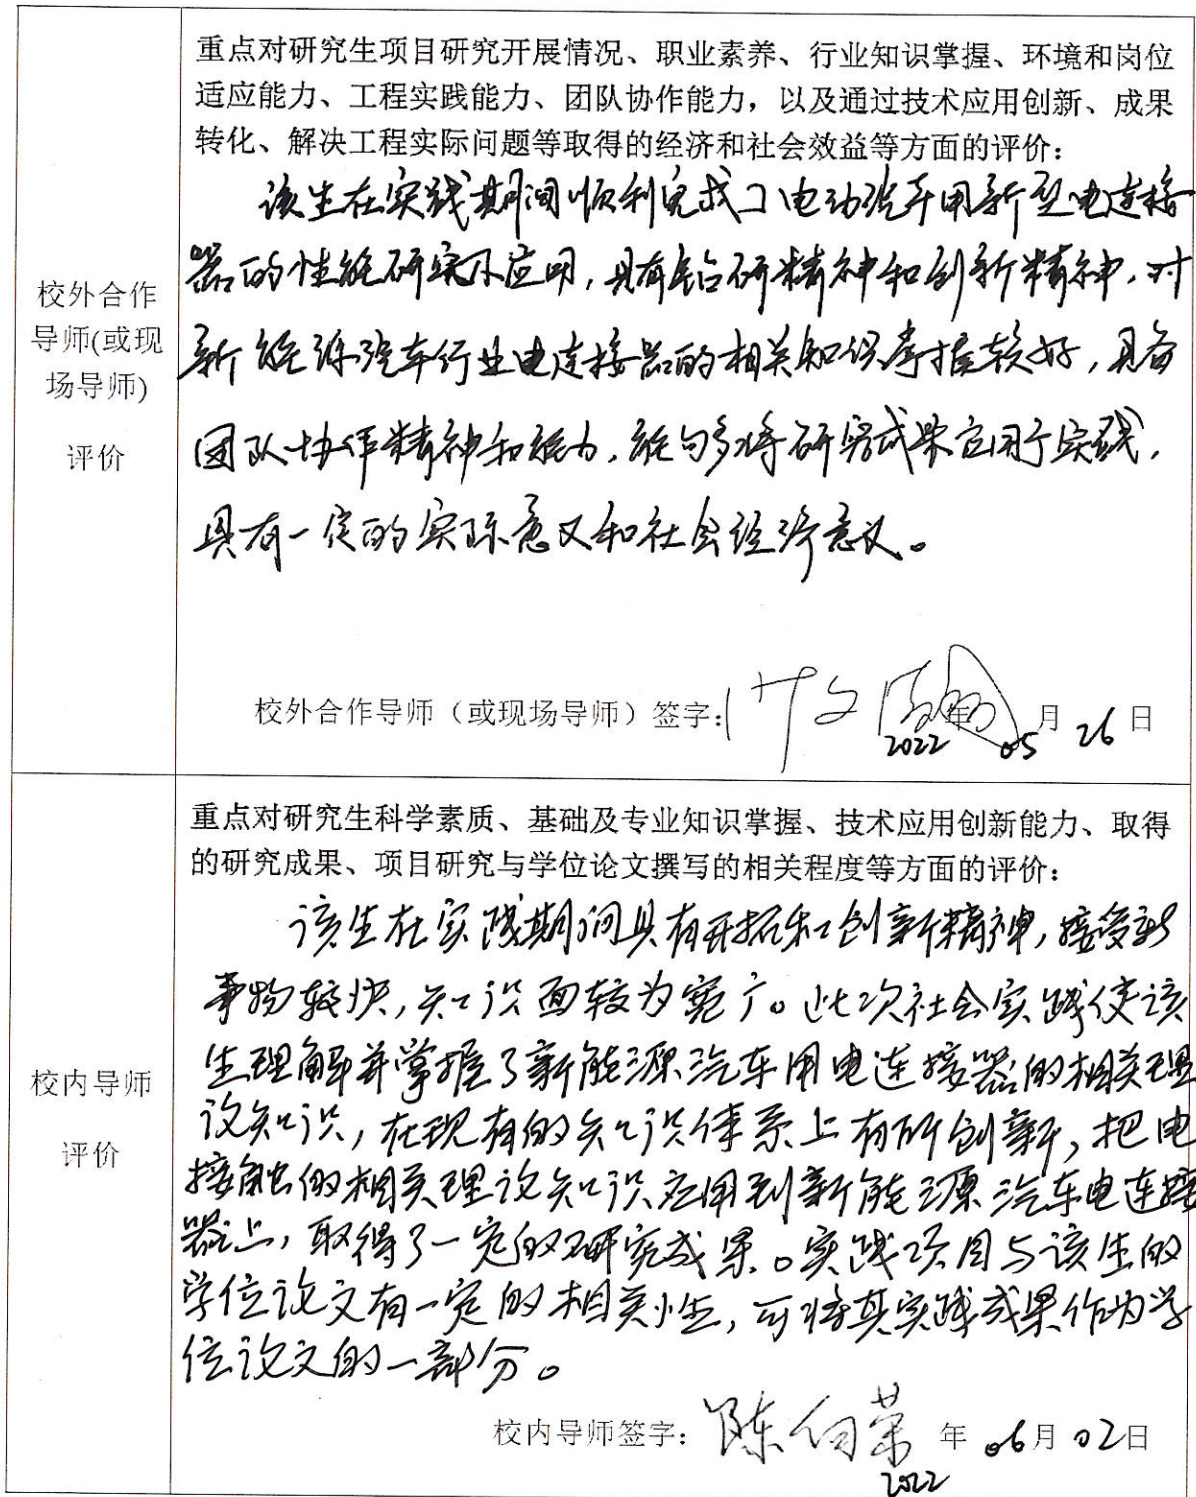 重点对研究生项目研究开展情况、职业素养、行业知识掌握、环境和岗位
适应能力、工程实践能力、团队协作能力，以及通过技术应用创新、成果
转化、解决工程实际问题等取得的经济和社会效益等方面的评价：
校外合作
导师(或现
场导师)
评价
该生在实践期间顺利完成了电动汽车用新型电连接
器的性能研究及应用，具有钻研精神和创新精神，对
新能源汽车行业电连接器的相关知识掌握较好，具备
团队协作精神和能力，能够将研究成果应用于实践，
具有一定的实际意义和社会经济意义。
校外合作导师（或现场导师）签字：
2022年05月26日
重点对研究生科学素质、基础及专业知识掌握、技术应用创新能力、取得
的研究成果、项目研究与学位论文撰写的相关程度等方面的评价：
校内导师
评价
该生在实践期间具有开拓和创新精神，接受新
事物较快，知识面较为宽广。此次社会实践使该
生理解并掌握了新能源汽车用电连接器的相关理
论知识，在现有的知识体系上有所创新，把电
接触的相关理论知识应用到新能源汽车电连接
器上，取得了一定的研究成果。实践项目与该生的
学位论文有一定的相关性，可将其实践成果作为学
位论文的一部分。
校内导师签字：陈向荣 2022年06月02日